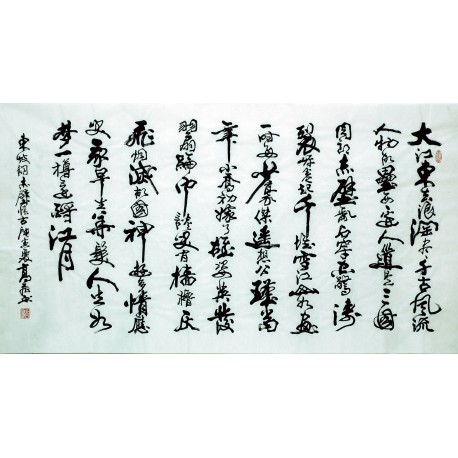 大江東去浪淘盡千古風流
人物故壘西邊人道是三國
周郎赤壁亂石穿空驚濤
裂岸捲起千堆雪江山如畫
一時多少豪傑遙想公瑾當
年小喬初嫁了雄姿英發
羽扇綸巾談笑間檣櫓灰
飛煙滅故國神遊多情應
笑我早生華髮人生如
夢一樽還酹江月
東坡詞赤壁懷古庚寅夏高